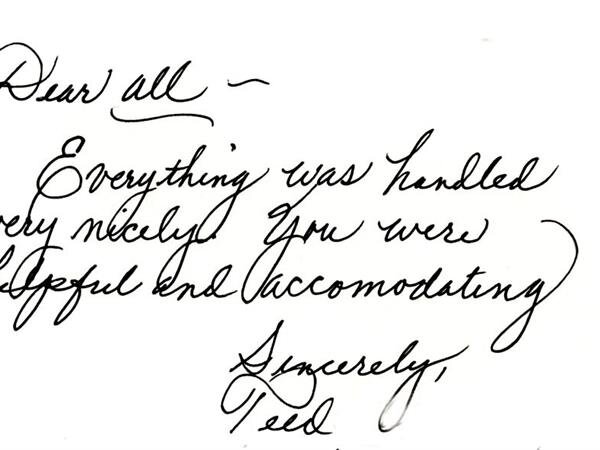 Dear all ~
Everything was handled
very nicely. You were
helpful and accomodating
Sincerely,
Teed